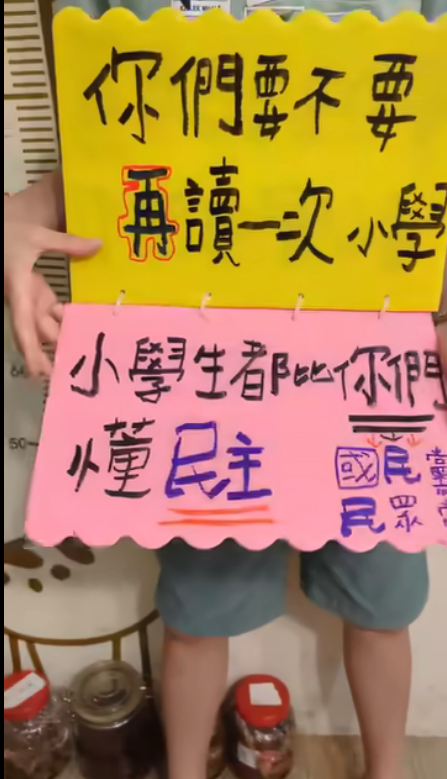 你們要不要
再讀一次小學
小學生都比你們
懂民主
國民黨
民眾黨
50